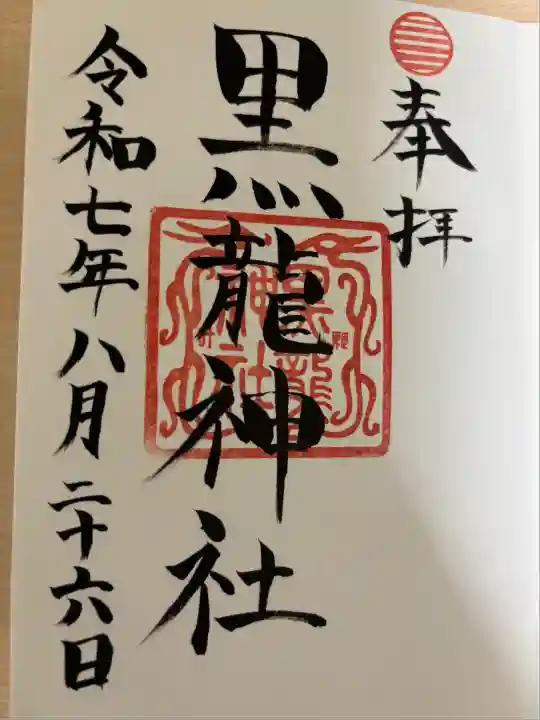 奉拝
黒龍神社
令和七年八月二十六日
黒龍
神社